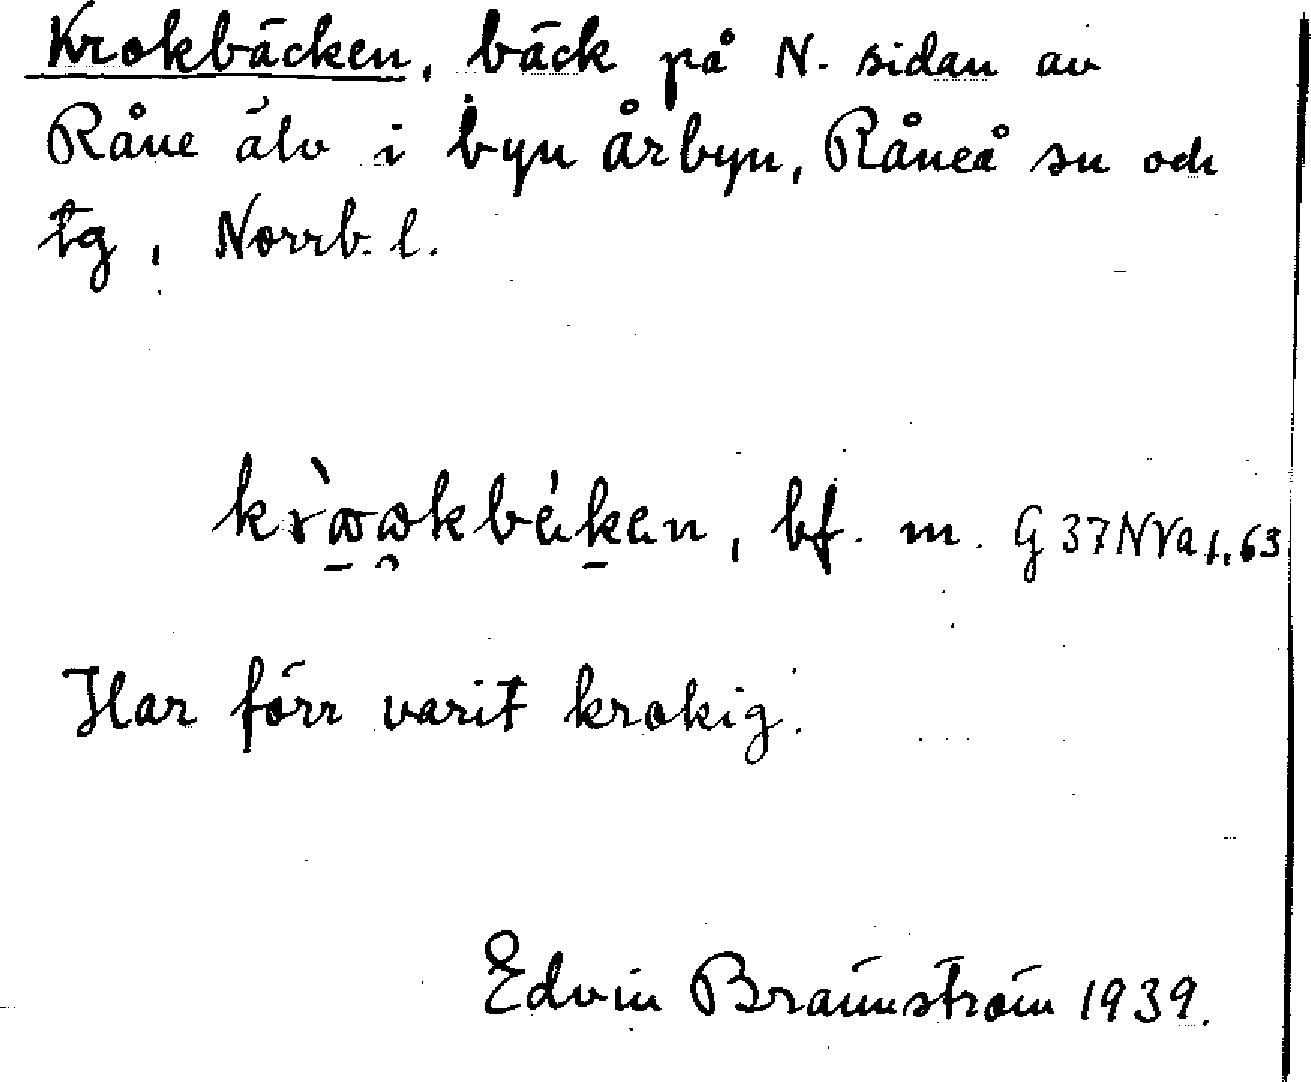 Krokbäcken, bäck på N. sidan av
Råne älv i byn Årbyn, Råneå sn och
tg, Norrb. l.
bf. m. G 37 N Va 1.63
Har förr varit krokig.
Edvin Brännström 1939.